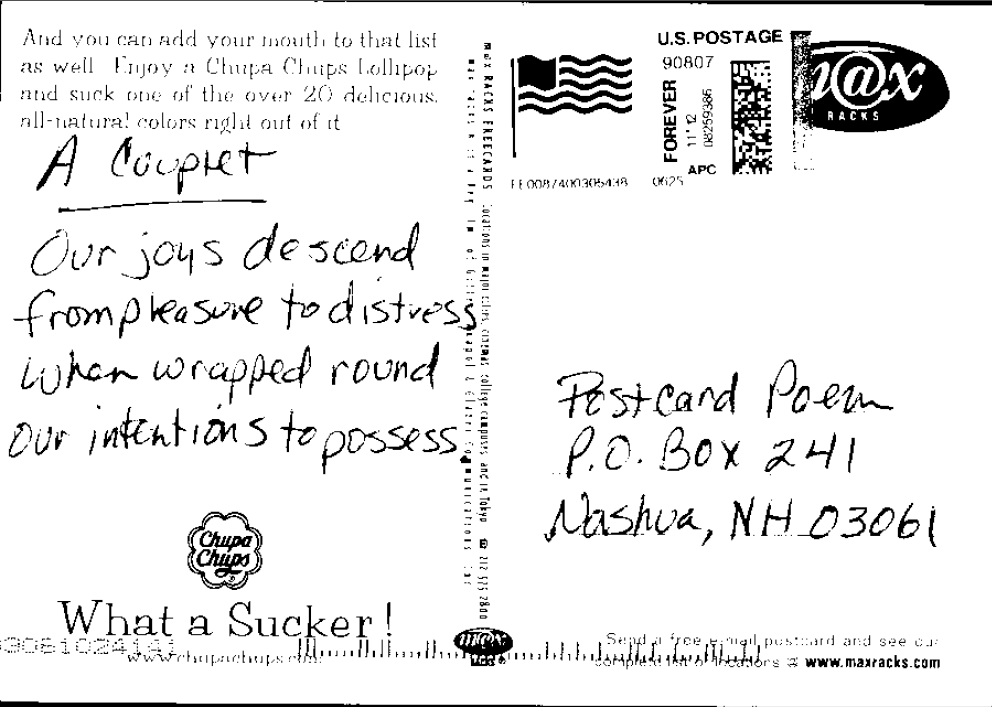 And you can add your mouth to that list
as well. Enjoy a Chupa Chups Lollipop
and suck one of the over 20 delicious,
all-natural colors right out of it
A Couplet
Our joys descend
from pleasure to distress
when wrapped round
our intentions to possess.
Chupa
Chups
What a Sucker!
www.chupachups.com
max RACKS FREECARDS Locations in major cities, cinemas, college campuses and in Tokyo ☎ 212 525 7800
U.S. POSTAGE
90807
FOREVER
11*12
08259386
APC
FE0087400305438 0625
m@x
RACKS
Postcard Poem
P.O. Box 241
Nashua, NH 03061
m@x
Send a free e-mail postcard and see our
complete list of locations @ www.maxracks.com